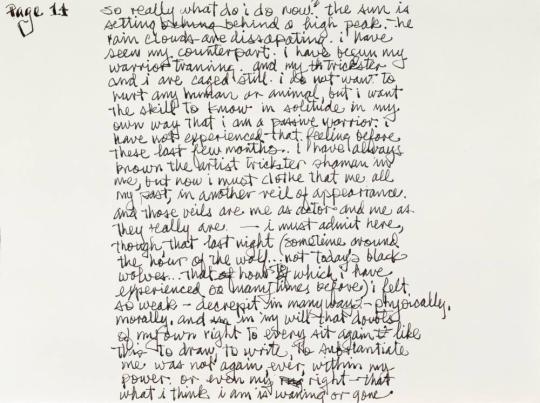 Page 14
so really what do i do now? the sun is
setting behind behind a high peak. the
rain clouds are dissapating. i have
seen my counterpart. i have begun my
warrior training. and my trickster
and i are caged still. i do not want to
hurt any human or animal, but i want
the skill to know in solitude in my
own way that i am a passive warrior. i
have not experienced that feeling before
these last few months. i have always
known the artist trickster shaman in
me, but now i must clothe that me all
my past, in another veil of appearrance.
and those veils are me as actor and me as
they really are. — i must admit here,
though that last night (sometime around
the hour of the wolf... not today's black
wolves... that hour which i have
experienced many times before) i felt
so weak – decrepit in many ways – physically,
morally, and in my will that doubts
of my own right to every sit again like
this to draw, to write, to substantiate
me was not again ever, within my
power. or even my right – that
what i think i am is waning or gone